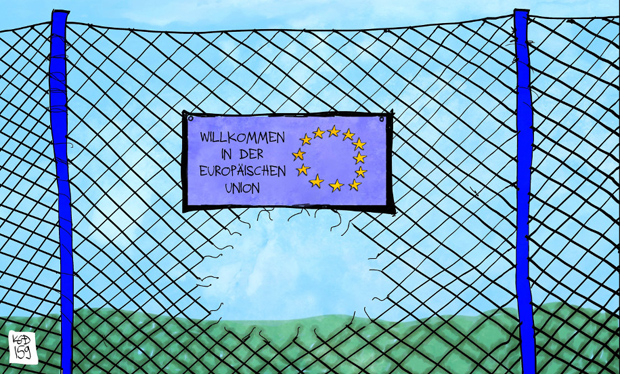 WILLKOMMEN
IN DER
EUROPÄISCHEN
UNION